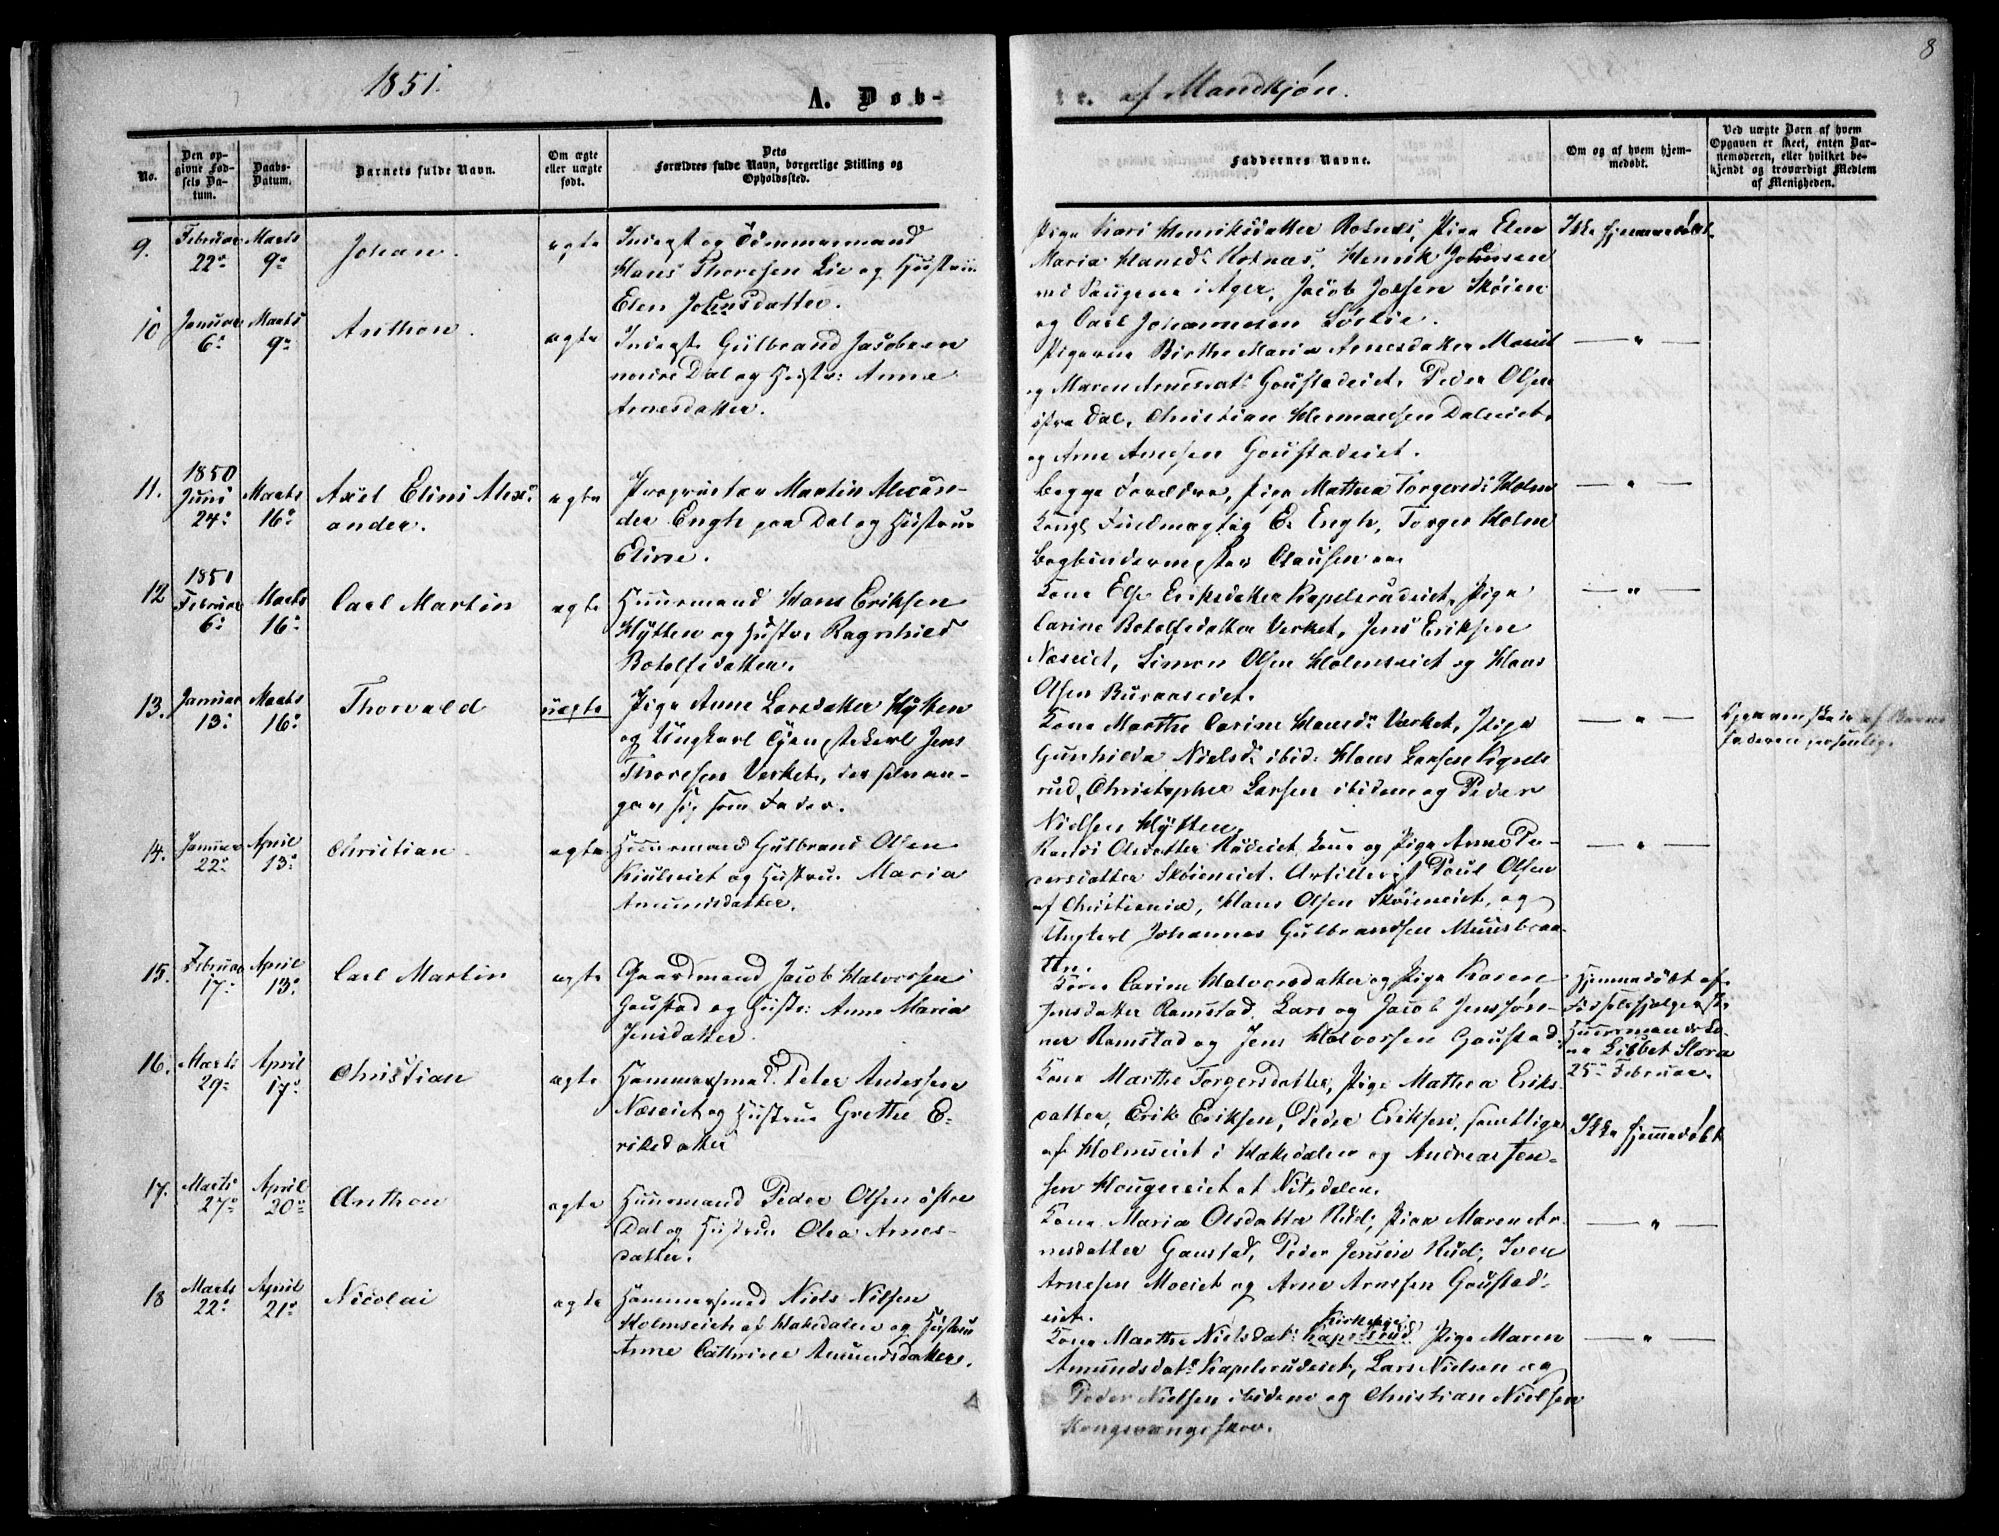 1851.
A. Døb-
te. af Mandkjøn.
8
No.
Den op-
givne Fød-
sels Da-
tum.
Daabs-
Datum.
Barnets fulde Navn.
Om ægte
eller uægte
født.
Dets
Forældres fulde Navn, borgerlige Stilling og
Opholdssted.
Faddernes Navne.
Om og af hvem hjem-
medøbt.
Ved uægte Born af hvem
Opgaven er skeet, enten Bar-
nemoderen, eller hvilket be-
kjendt og troværdigt Medlem
af Menigheden.
9.
Februar
22de
Marts
9de
Johan.
ægte
Inderst og Tømmermand
Hans Thoresen Lie og Hustru
Elen Johnsdatter.
Pige Kari Henriksdatter Rolnæs, Pige Elen
Maria Hansd: Holnæs, Henrik Johnsen
ved Saugene i Ager, Jacob Joesen Skøien
og Carl Johannesen
Ikke hjemmedøbt.
10
Januar
6te
Marts
9de
Anthon.
ægte
Inderst Gulbrand Jacobsen
nordre Dal og Hustr: Anne
Arnesdatter.
Pigerne Birthe Maria Arnesdatter
og Maren Arnesdat: Goustadeiet, Peder Olsen
østre Dal, Christian Hermansen Daleiet,
og Arne Arnesen Goustadeiet.
— " —
11.
1850
Juni
24de
Marts
16de
Axel Elini Alex-
ander.
ægte
Proprietær Martin Alexan-
der Engh paa Dal og Hustrue
Eline.
Begge Forældre, Pige Mathea Torgersd: Holm
Kongl Fuldmægtig E. Engh, Torger Holm
Bogbindermester Clausen
— " —
12
1851
Februar
6te
Marts
16de
Carl Martin
ægte
Huusmand Hans Eriksen
Hytten og Hustru Ragnhild
Botolfsdatter.
Kone Else Eriksdatter Kapelsrudeiet, Pige
Carine Botolfsdatter Verket, Jens Eriksen
Næseiet, Simon Olsen Holmseiet og Hans
Olsen Buraaseiet.
— " —
13.
Januar
13de
Marts
16de
Thorvald
uægte
Pige Anne Larsdatter Hytten
og Ungkarl Tjenestekarl Jens
Thoresen Verket, der selv an-
gav sig som Fader.
Kone Marthe Carine Hansd: Værket, Pige
Gunhilda Nielsd: ibid: Hans Larsen Kapels-
rud, Christopher Larsen ibidem og Peder
Nielsen Hytten.
— " —
af Barne
faderen personlig.
14.
Januar
22de
April
13de
Christian
ægte
Huusmand Gulbrand Olsen
Kiulseiet og Hustru Maria
Amundsdatter.
Randi Olsdatter Rudeiet Kone og Pige Anne Pe-
dersdatter Skøieneiet. Artillerist Poul Olsen
af Christiania, Hans Olsen Skøieneiet, og
Ungkarl Johannes Gulbrandsen Muusbraa-
ten.
— " —
15.
Februar
17de
April
13de
Carl Martin
ægte
Gaardmand Jacob Halvorsen
Goustad og Hustr: Anne Maria
Jensdatter.
Kone Carine Halvorsdatter og Pige Karen
Jensdatter Ramstad, Lars og Jacob Jenssøn-
ner Ramstad og Jens Halvorsen Goustad.
Hjemmedøbt af
Fødselshjælperske
Huusmands Ko-
ne Lisbet Slora
25de Februar.
16.
Marts
29de
April
17de
Christian
ægte
Hammersmed Peter Andersen
Næseiet og Hustrue Grethe E-
riksdatter
Kone Marthe Torgersdatter, Pige Mathea Eriks-
datter, Erik Eriksen, Peder Eriksen, samtlige
af Holmseiet i Hakedalen og Andreas Jen-
sen Haugereiet af Nitedalen.
Ikke hjemmedøbt
17.
Marts
27de
April
20de
Anthon
ægte
Huusmand Peder Olsen østre
Dal og Hustrue Olea Arnes-
datter.
Kone Maria Olsdatter Rud, Pige Maren Ar-
nesdatter Goustad, Peder Jensen Rud, Iver
Arnesen Moeiet og Arne Arnesen Goustad-
eiet.
— " —
18
Marts
22de
April
21de
Nicolai
ægte
Hammersmed Niels Nilsen
Holmseiet af Hakedalen og Hustru
Anne Cathrine Amundsdatter.
Kone Marthe Nielsdat: Kapelsrud, Pige Maren
Amundsdat: Kapelsrudeiet, Lars Nielsen og
Peder Nielsen ibidem og Christian Nielsen
Kongsvangs skov.
— " —